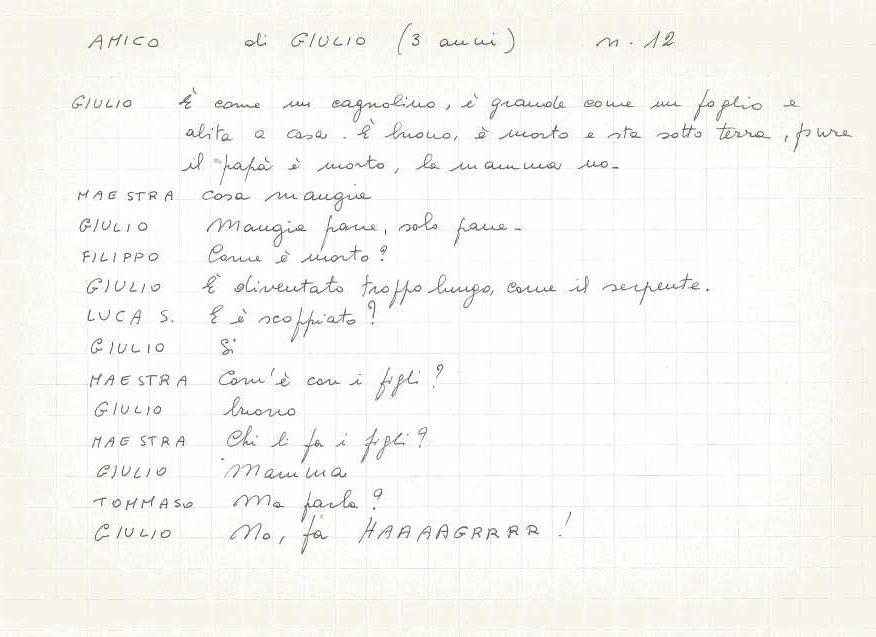 AMICO di GIULIO (3 anni) n. 12
GIULIO È come un cagnolino, è grande come un foglio e
abita a casa. È buono, è morto e sta sotto terra, pure
il papà è morto, la mamma no.
MAESTRA Cosa mangia
GIULIO Mangia pane, solo pane.
FILIPPO Come è morto?
GIULIO È diventato troppo lungo, come il serpente.
LUCA S. E è scoppiato?
GIULIO Si
MAESTRA Com'è con i figli?
GIULIO buono
MAESTRA Chi li fa i figli?
GIULIO Mamma
TOMMASO Ma parla?
GIULIO No, fa HAAAAGRRRR!